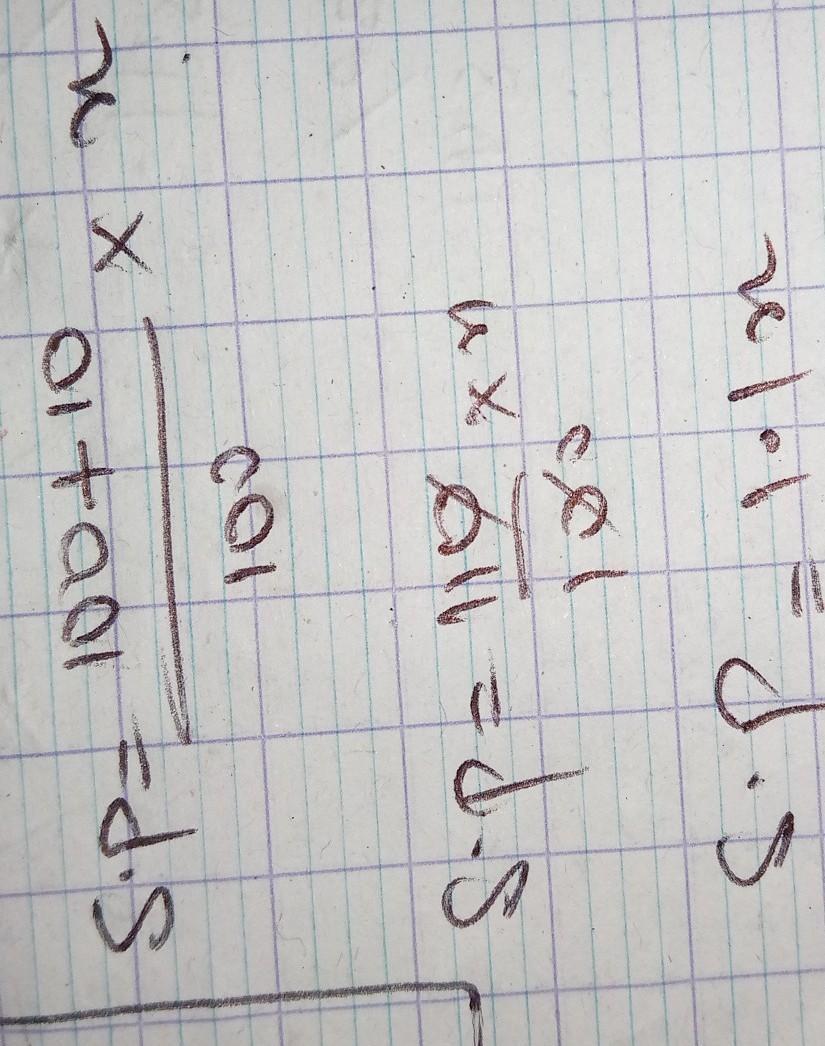 S.P = 100+10/100 × x
S.P = 110/100 × x
S.P = 1.1x